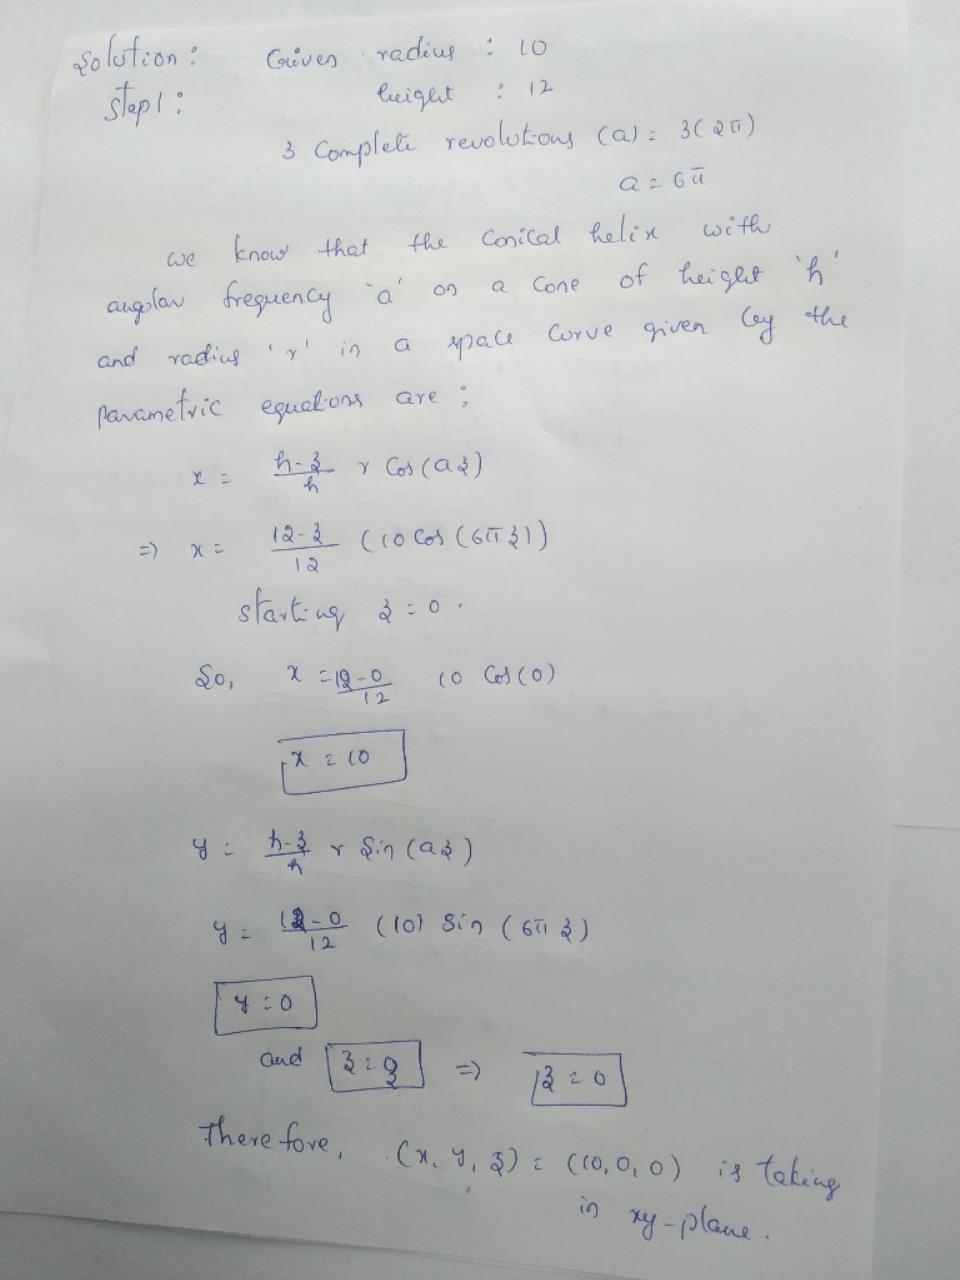 Solution: Given radius : 10
Step1: height : 12
3 Complete revolutions (a) = 3(2π)
a = 6π
we know that the Conical helix with
angular frequency 'a' on a Cone of height 'h'
and radius 'r' in a space Curve given by the
parametric equations are :
x = h-z/h r Cos(az)
=> x = 12-z/12 (10 Cos(6πz))
starting z = 0.
So, x = 12-0/12 10 Cos(0)
x = 10
y = h-z/h r Sin(az)
y = 12-0/12 (10) Sin(6πz)
y = 0
and z = z => z = 0
Therefore, (x, y, z) = (10, 0, 0) is taking
in xy-plane.